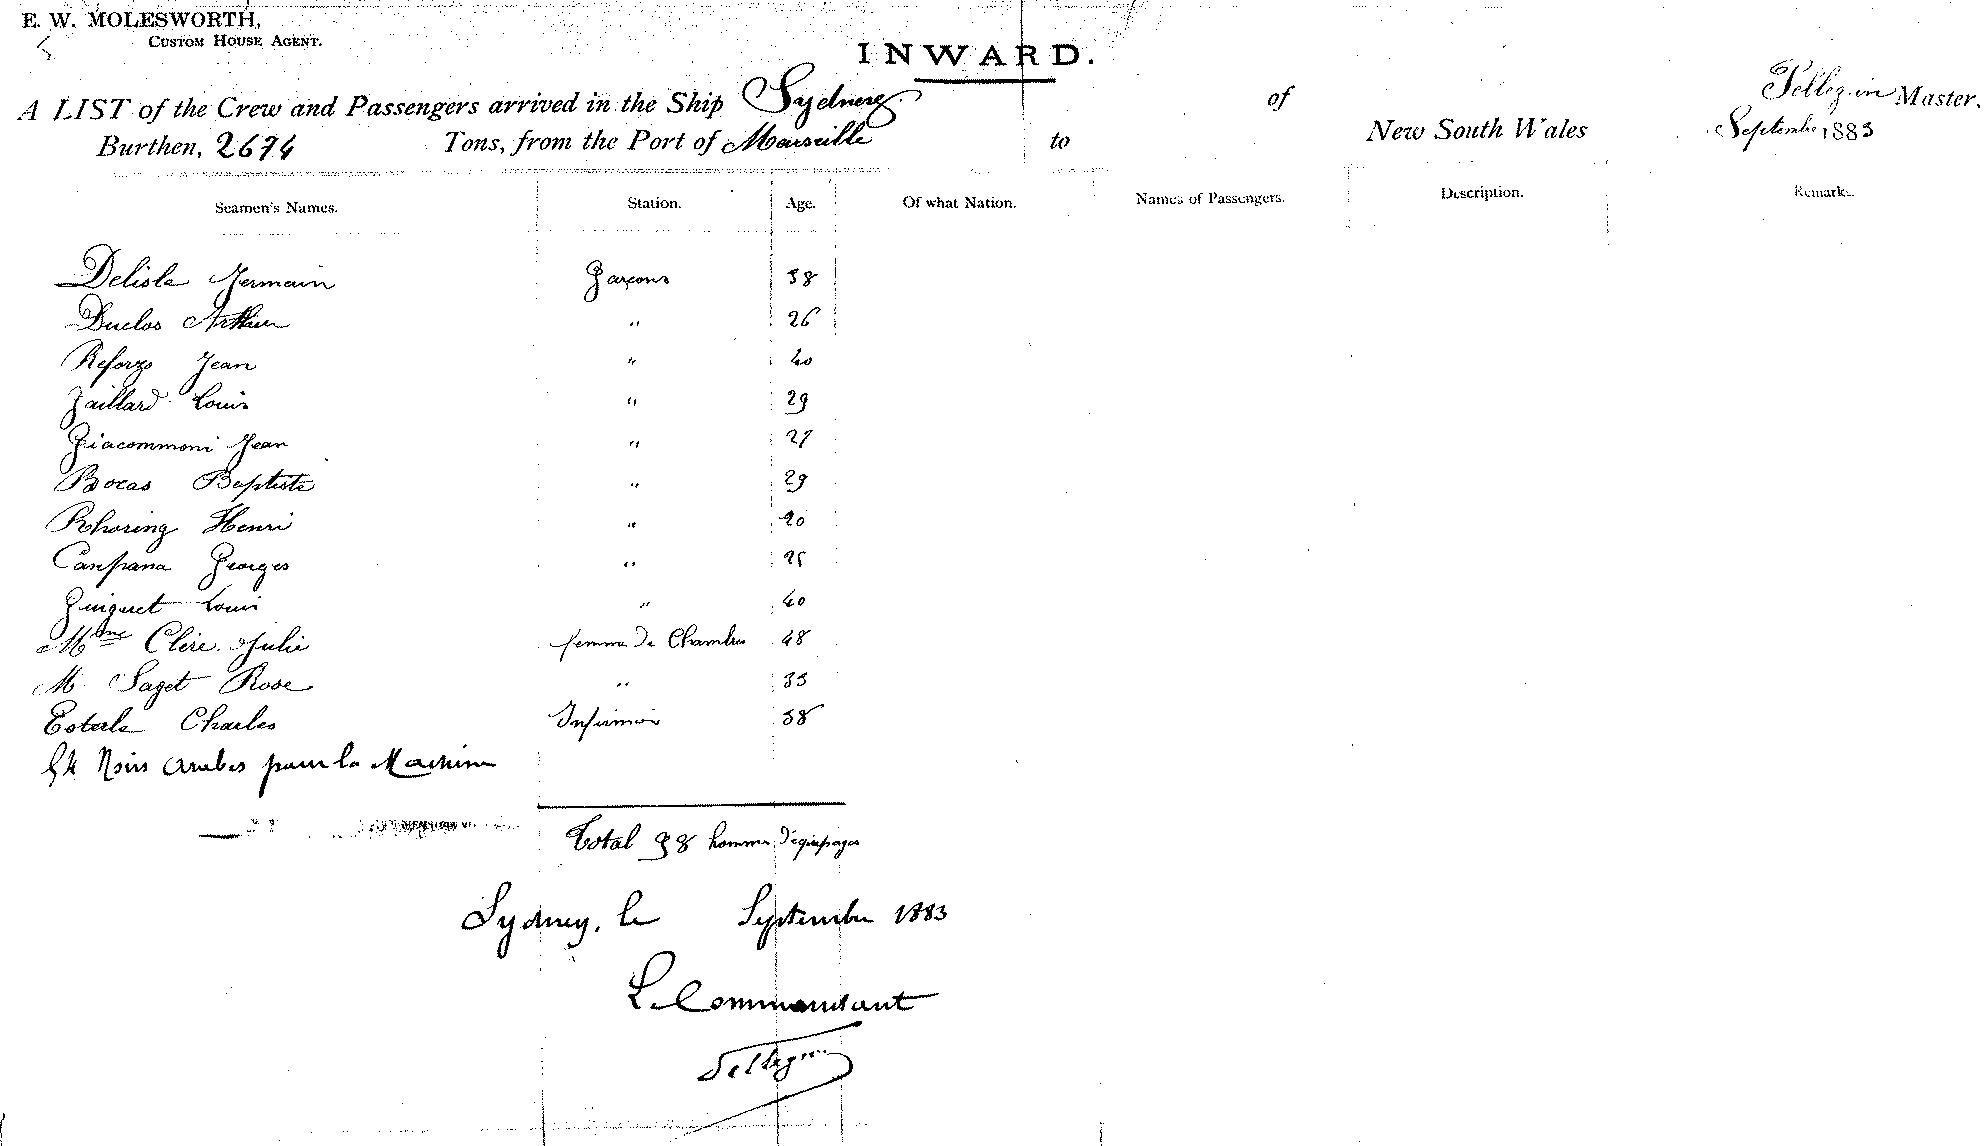 E. W. MOLESWORTH,
CUSTOM HOUSE AGENT.
INWARD.
A LIST of the Crew and Passengers arrived in the Ship Sydney of Pellegrin Master,
Burthen, 2674 Tons, from the Port of Marseille to New South Wales Septembre 1883
Seamen's Names. Station. Age. Of what Nation. Names of Passengers. Description. Remarks.
Delisle Germain Garçons 38
Duclos Arthur " 26
Reforzo Jean " 40
Gaillard Louis " 29
Giacommoni Jean " 27
Bocas Baptiste " 29
Rhoring Henri " 20
Campana Georges " 25
Guiguet Louis " 40
Mme Clère Julie femme de Chambre 48
M. Saget Rose " 33
Esterle Charles Infirmier 38
Noirs arabes pour la Machine
Total 98 hommes d'équipages
Sydney, le Septembre 1883
Le Commandant
Pellegrin